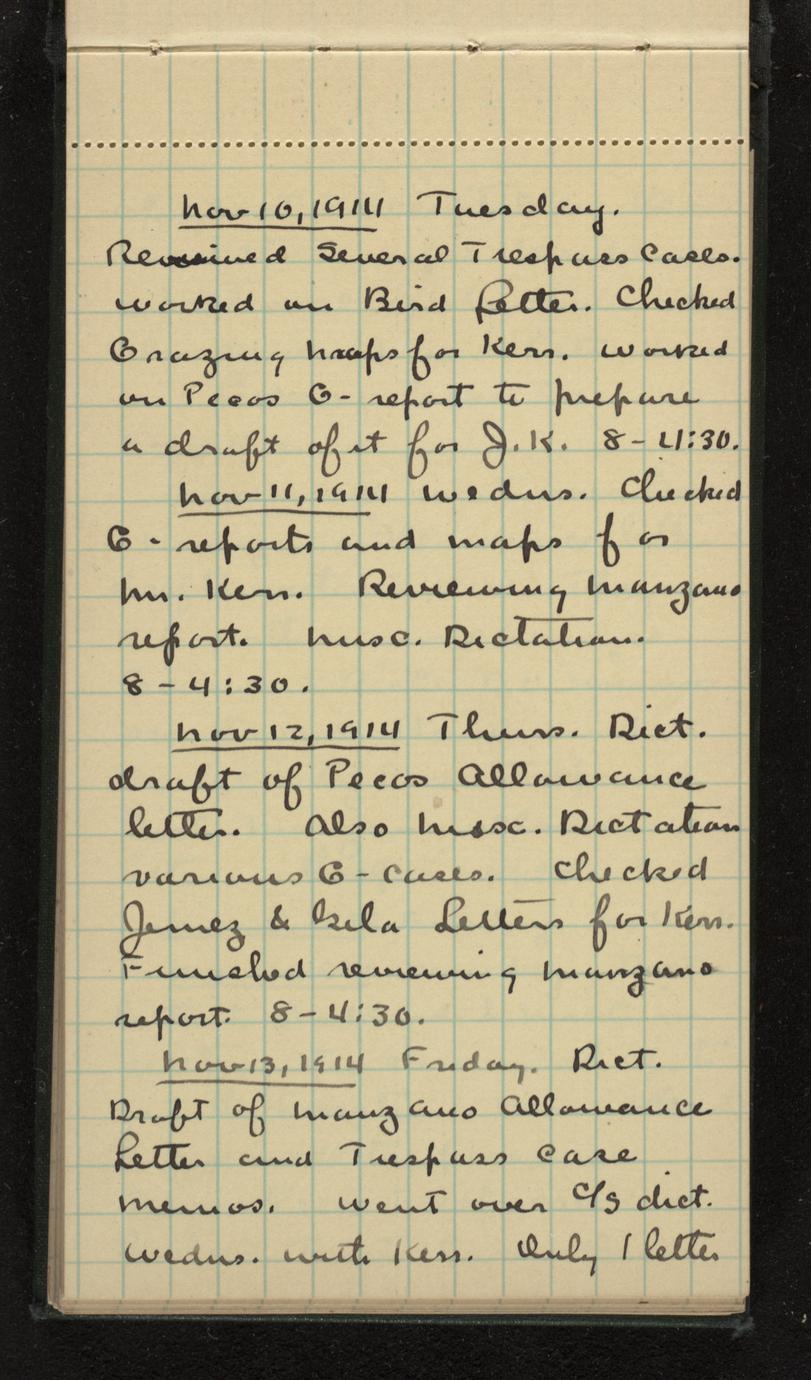 Nov 10, 1914 Tuesday.
Reviewed Several Trespass Cases.
worked on Bird Letter. Checked
Grazing maps for Kerr. worked
on Pecos G- report to prepare
a draft of it for J.K. 8-4:30.
Nov 11, 1914 Wednes. Checked
G- reports and maps for
Mr. Kerr. Reviewing Manzano
report. Misc. Dictation.
8-4:30.
Nov 12, 1914 Thurs. Dict.
draft of Pecos Allowance
letter. Also Misc. Dictation
various G- Cases. Checked
Jemez & Gila Letters for Kerr.
Finished reviewing Manzano
report. 8-4:30.
Nov 13, 1914 Friday. Dict.
Draft of Manzano Allowance
Letter and Trespass Case
memos. Went over dict.
Wednes. with Kerr. Only 1 letter